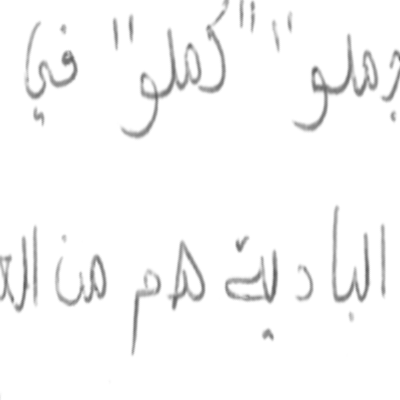 جملو" "كملو" في
البادية هم من الع